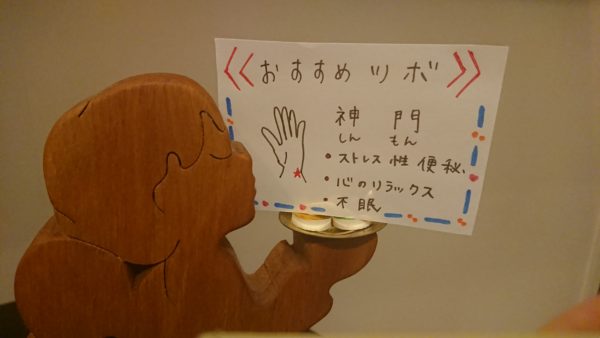 《おすすめツボ》
神門
しんもん
・ストレス性便秘、
・心のリラックス
・不眠